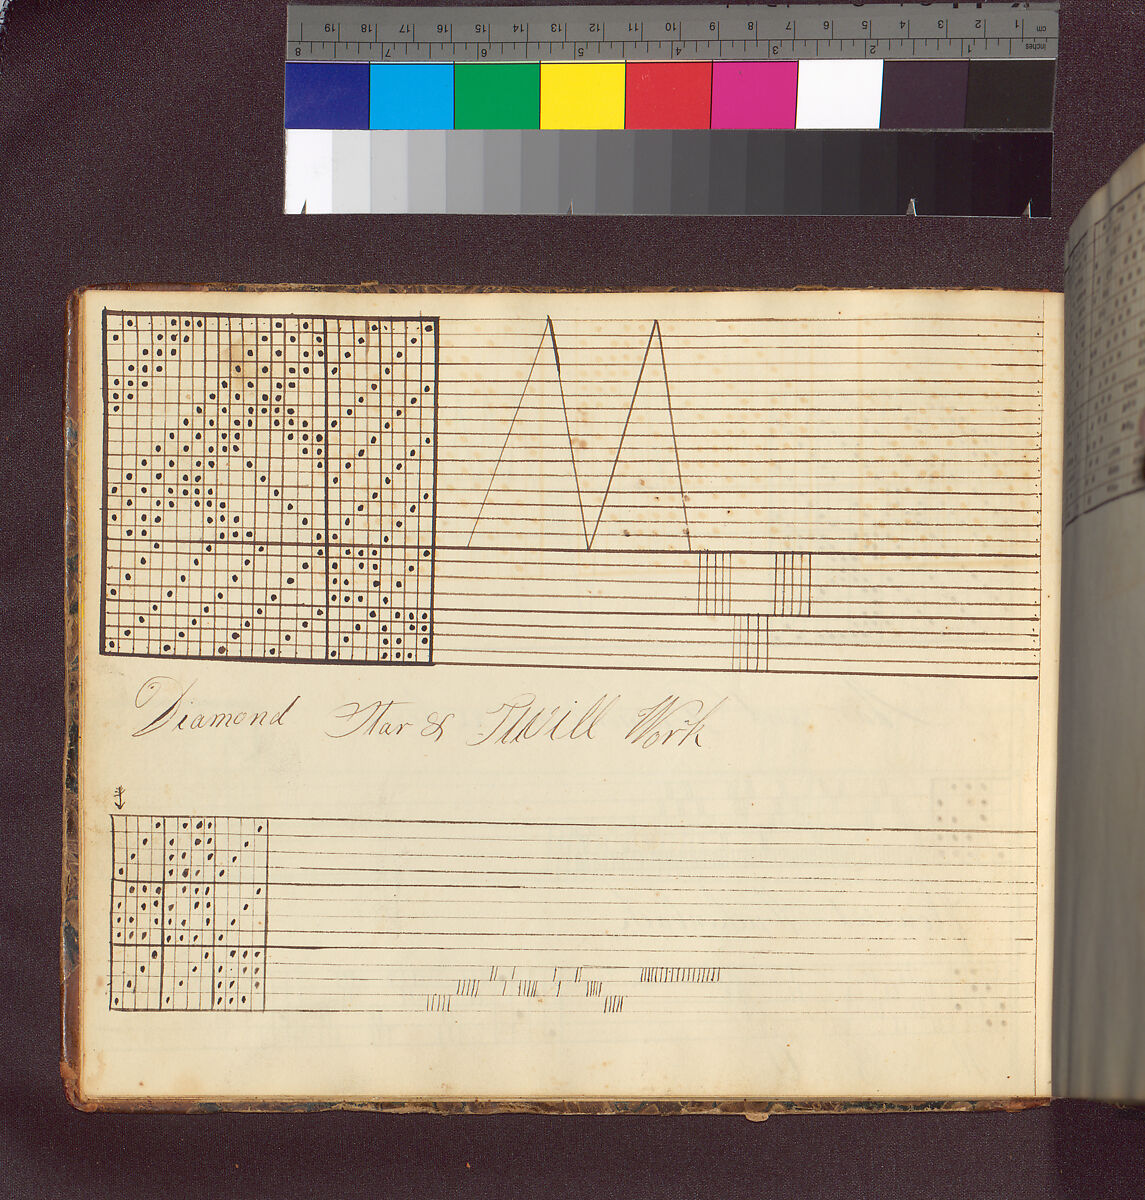 19 18 17 16 15 14 13 12 11 10 9 8 7 6 5 4 3 2 1 cm
8 7 6 5 4 3 2 1 inches
Diamond Star & Twill Work